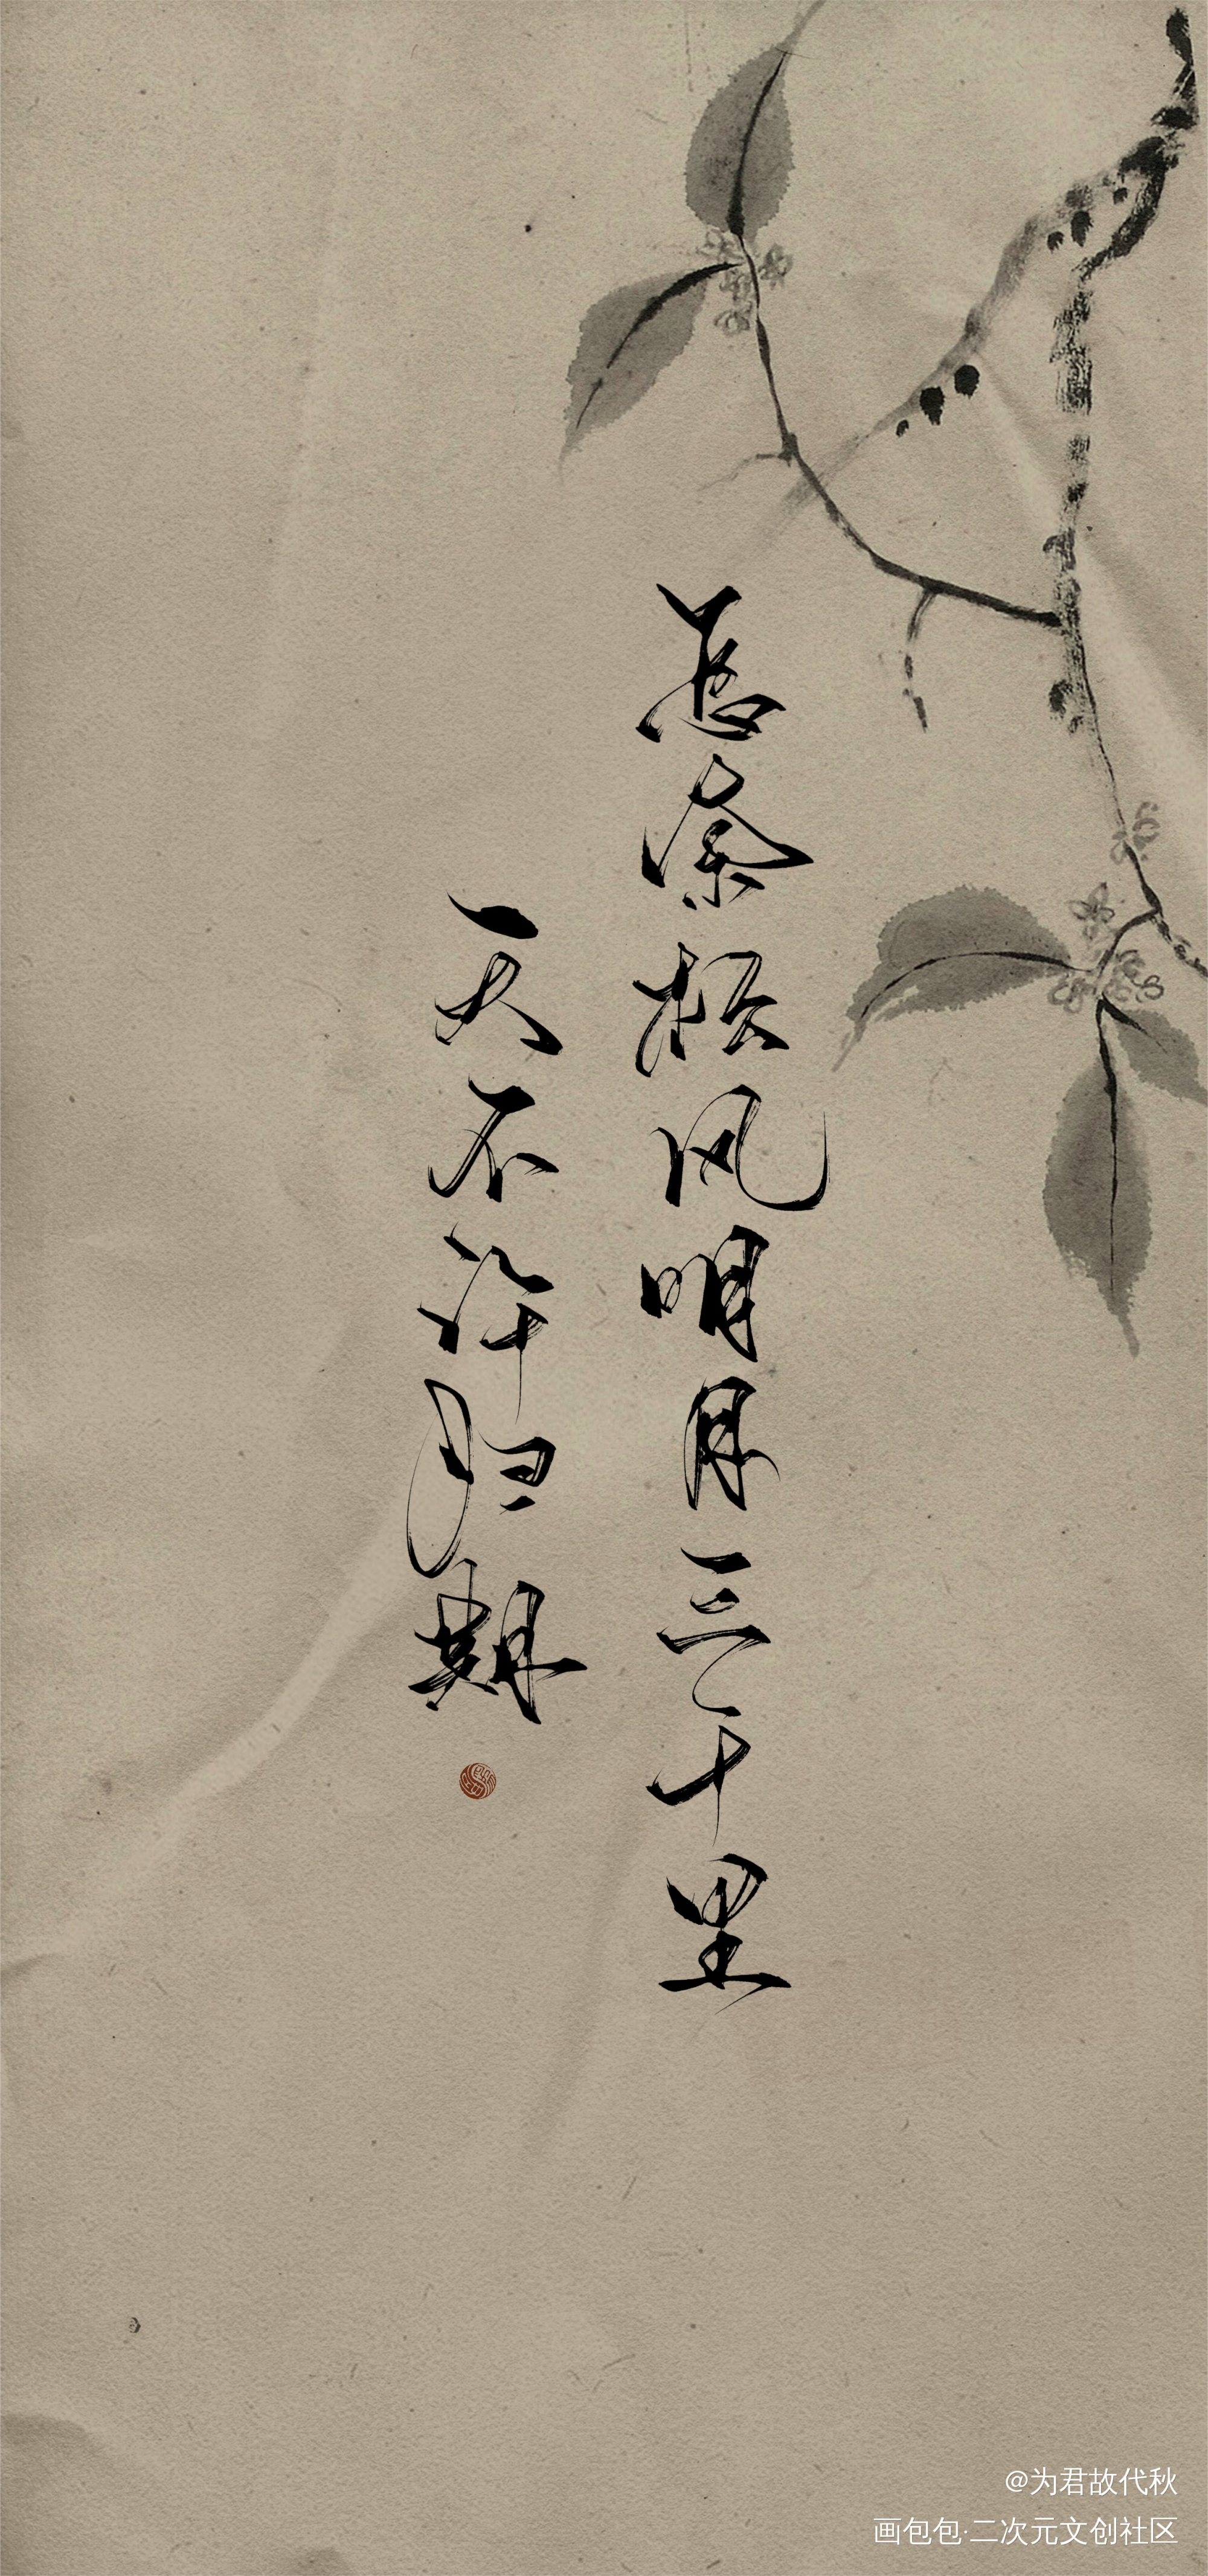 怎奈松风明月三十里
天不许归期
@为君故代秋
画包包·二次元文创社区